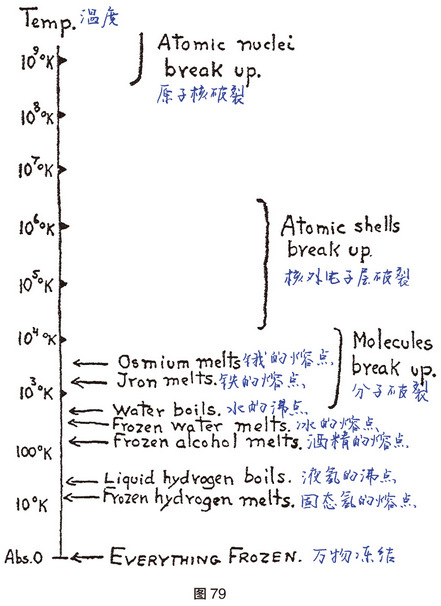 Temp. 温度
10⁹°K
Atomic nuclei
break up.
原子核破裂
10⁸°K
10⁷°K
10⁶°K
Atomic shells
break up.
核外电子层破裂
10⁵°K
10⁴°K
Molecules
break up.
分子破裂
Osmium melts 锇的熔点
Iron melts. 铁的熔点
10³°K
Water boils. 水的沸点
Frozen water melts. 冰的熔点
Frozen alcohol melts. 酒精的熔点
100°K
Liquid hydrogen boils. 液氢的沸点
Frozen hydrogen melts. 固态氢的熔点
10°K
Abs.0
EVERYTHING FROZEN. 万物冻结
图 79